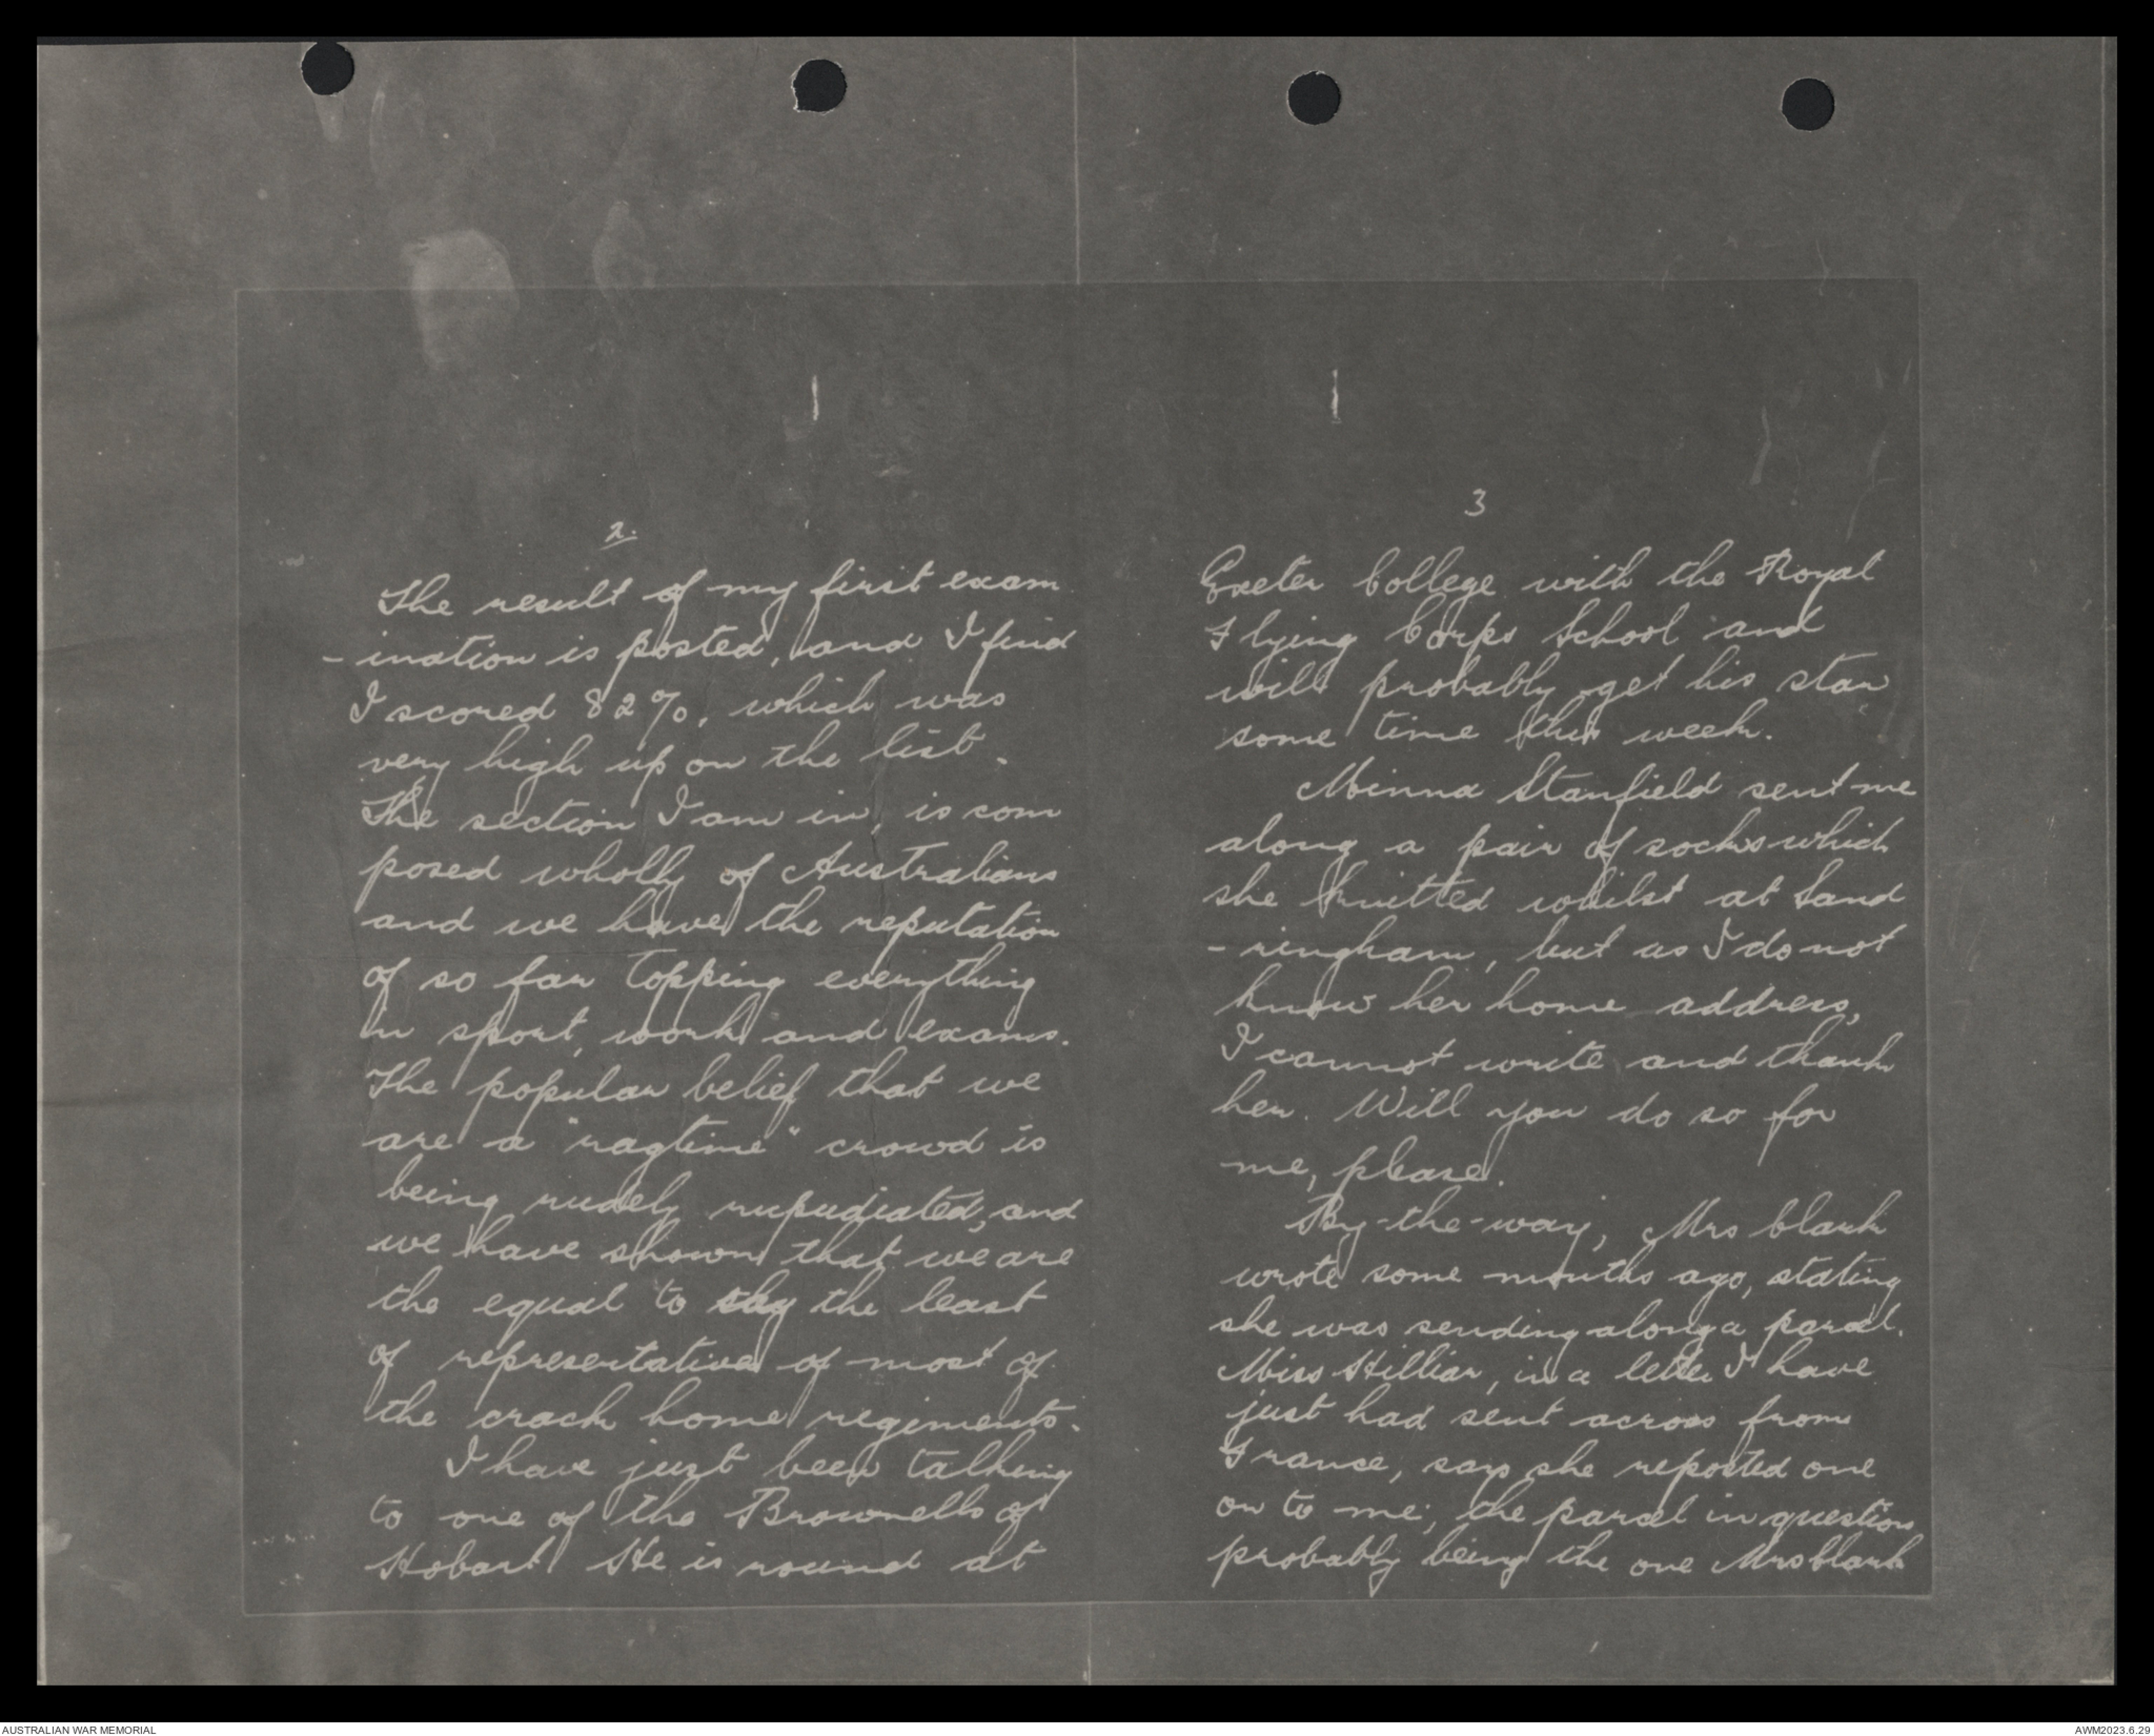 2.
The result of my first exam
-ination is posted, and I find
I scored 82%, which was
very high up on the list.
The section I am in, is com
posed wholly of Australians
and we have the reputation
of so far topping everything
in sport, work and exams.
The popular belief that we
are a "ragtime" crowd is
being rudely repudiated, and
we have shown that we are
the equal to say the least
of representatives of most of
the crack home regiments.
I have just been talking
to one of the Brownells of
Hobart He is round at
3
Exeter College with the Royal
Flying Corps School and
will probably get his star
some time this week.
Minna Stanfield sent me
along a pair of socks which
she knitted whilst at Sand
-ringham, but as I do not
know her home address,
I cannot write and thank
her. Will you do so for
me, please.
By-the-way, Mrs Clark
wrote some months ago, stating
she was sending along a parcel.
Miss Hilliar, in a letter I have
just had sent across from
France, says she reposted one
on to me; the parcel in question
probably being the one Mrs Clark
AUSTRALIAN WAR MEMORIAL
AWM2023.6.29